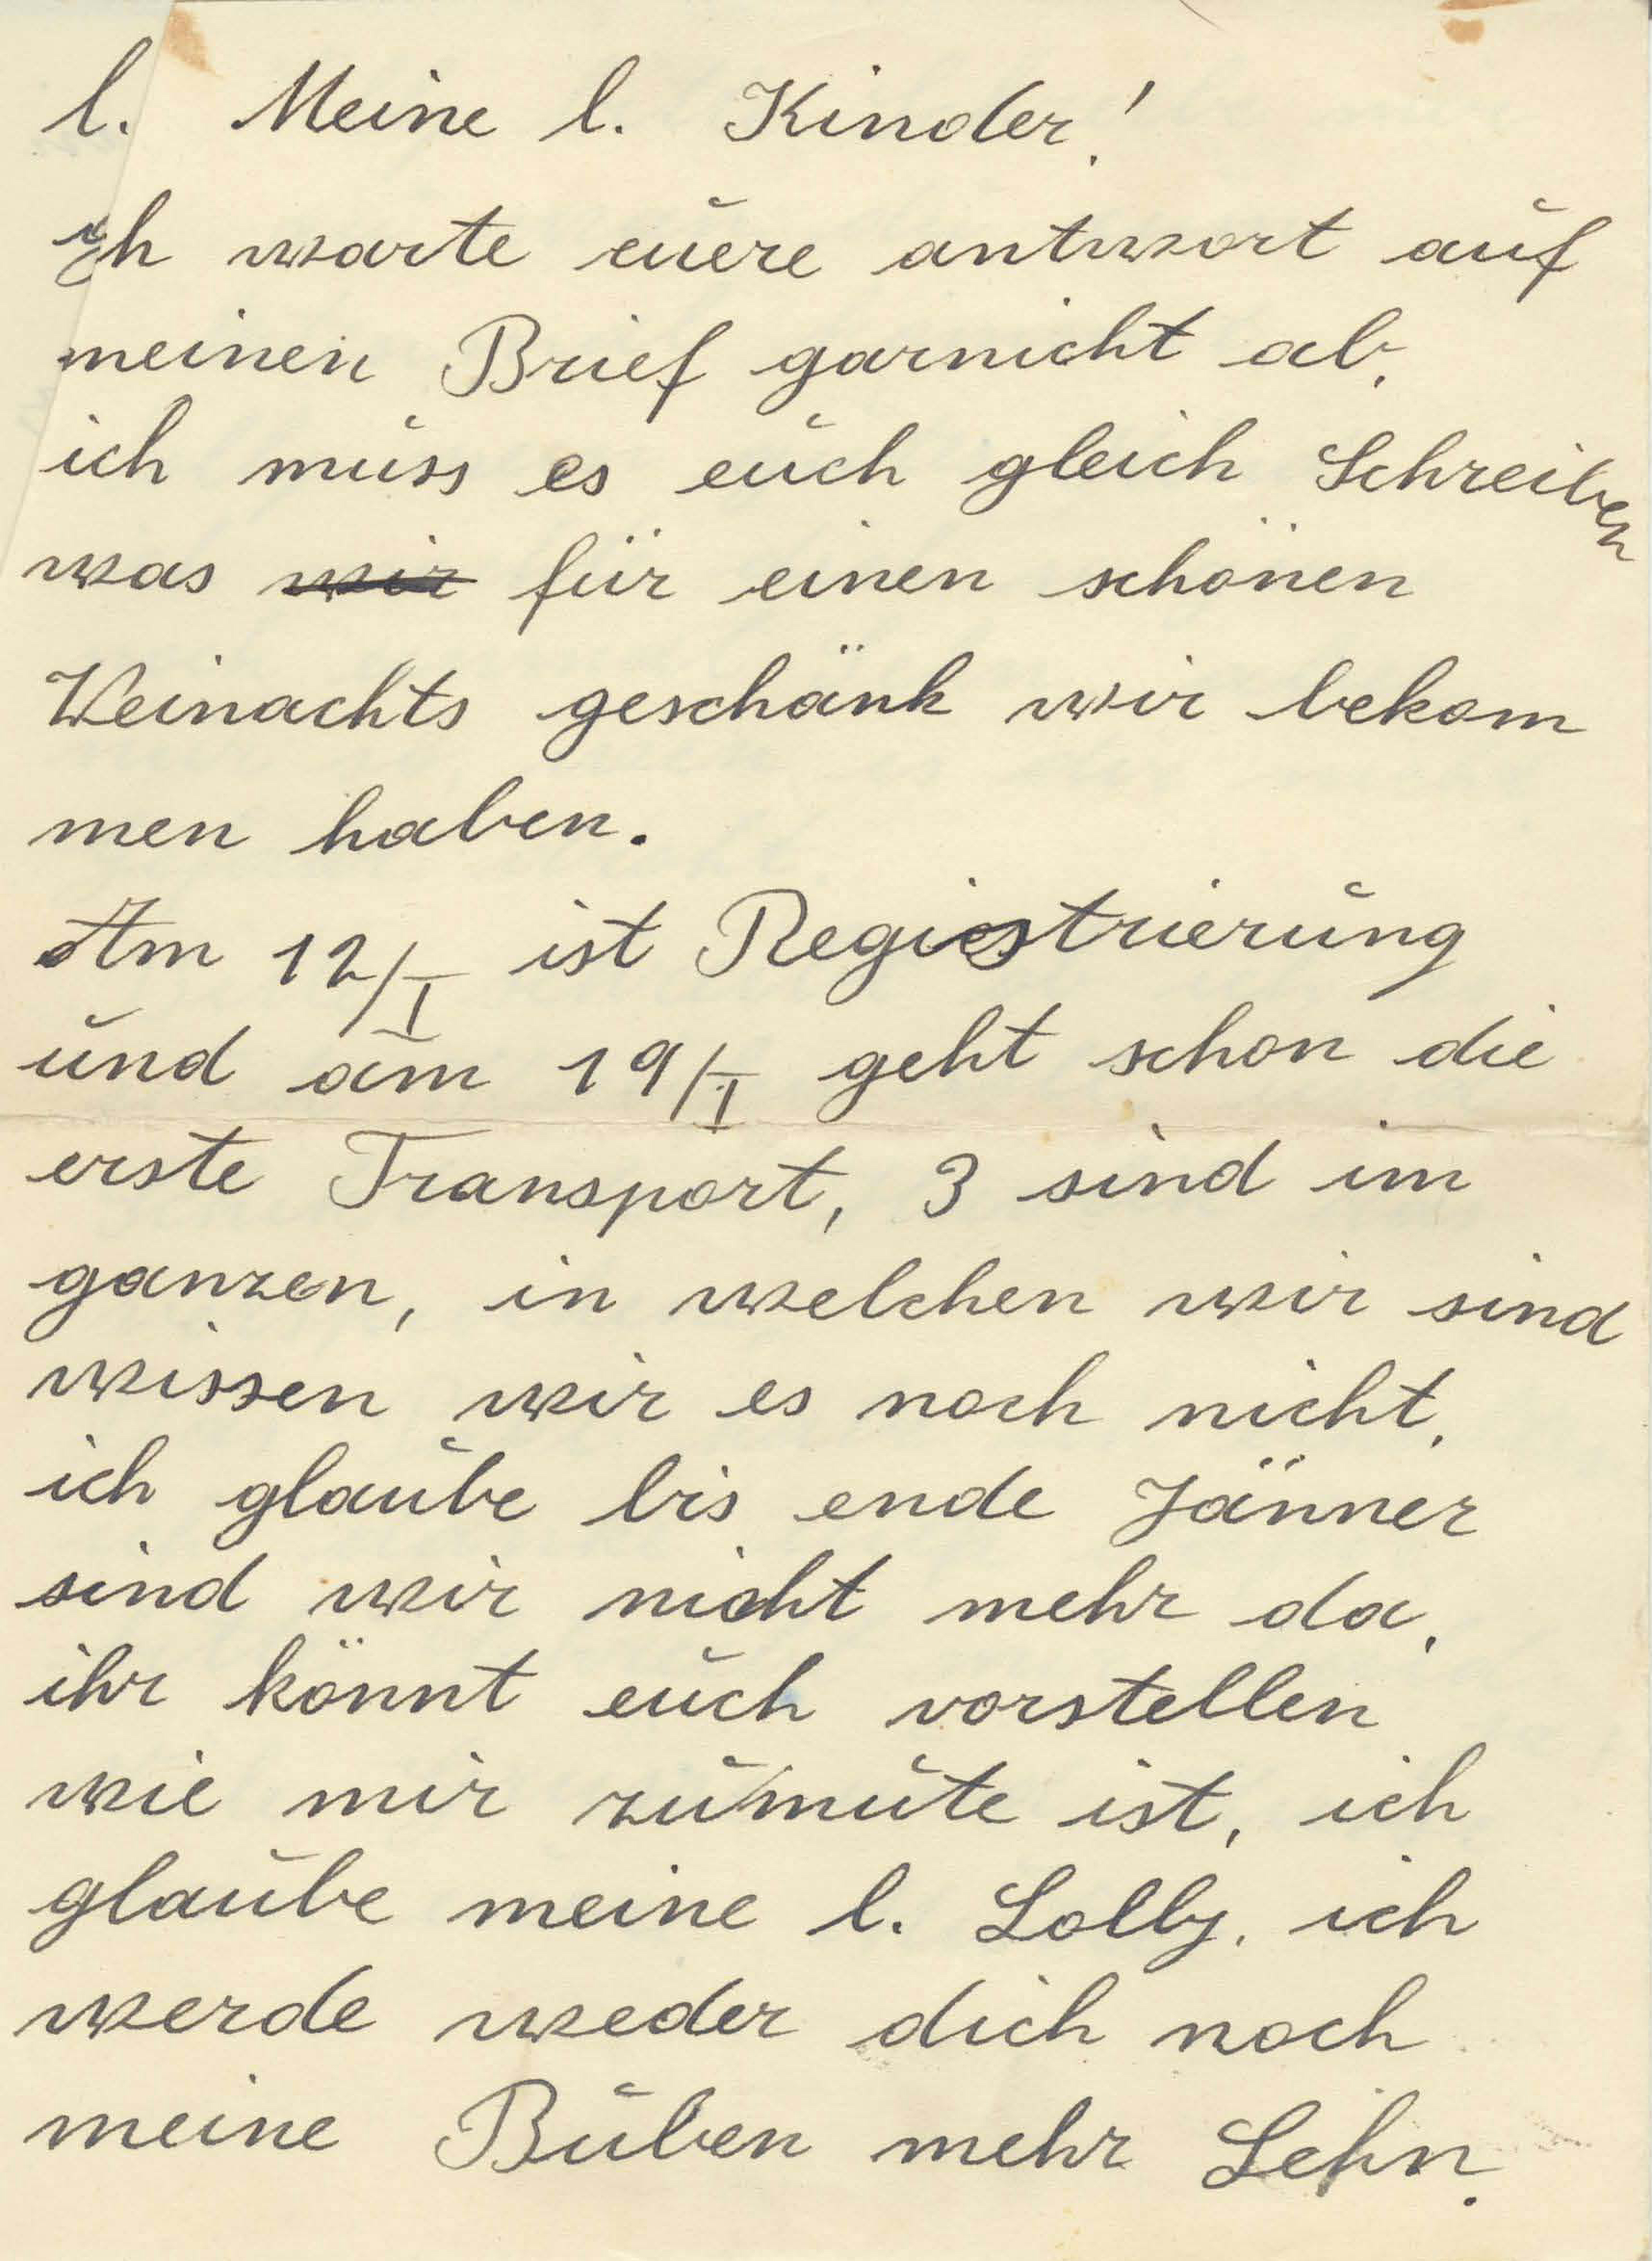 l. Meine l. Kinder!
ich warte euere antwort auf
meinen Brief garnicht ab,
ich muss es euch gleich Schreiben
was wir für einen schönen
Weinachts geschänk wir bekom
men haben.
Am 12/I ist Registrierung
und am 19/I geht schon die
erste Transport, 3 sind im
ganzen, in welchen wir sind
wissen wir es noch nicht,
ich glaube bis ende Jänner
sind wir nicht mehr da,
ihr könnt euch vorstellen
wie mir zumute ist, ich
glaube meine l. Lolly, ich
werde weder dich noch
meine Buben mehr Sehn.